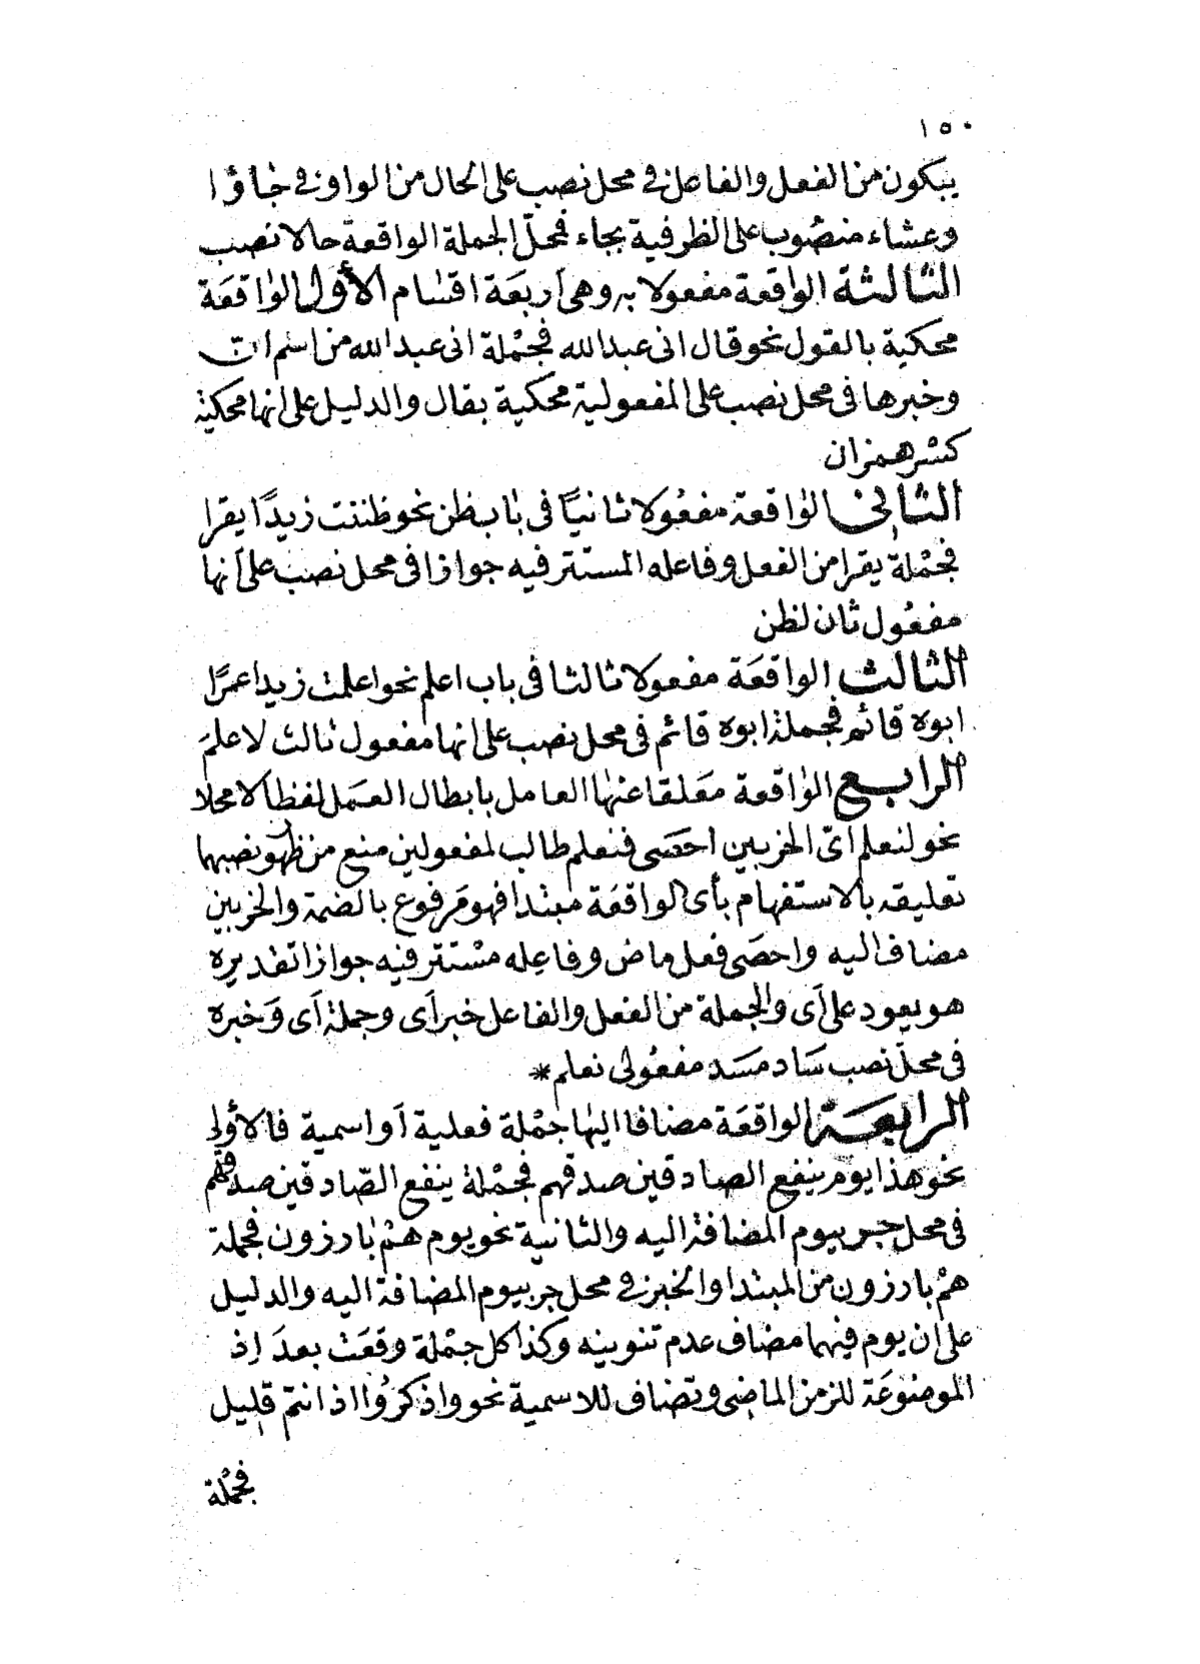 ١٥٠
يبكون من الفعل والفاعل في محل نصب على الحال من الواو في جاؤا
وعشاء منصوب على الظرفية بجاء فمحل الجملة الواقعة حالا نصب
الثالثة الواقعة مفعولا به وهي أربعة اقسام الأول الواقعة
محكية بالقول نحو قال انى عبد الله فجملة انى عبد الله من اسم ان
وخبرها في محل نصب على المفعولية محكية بقال والدليل على انها محكية
كسر همز ان
الثاني الواقعة مفعولا ثانيا في باب ظن نحو ظننت زيدًا يقرا
فجملة يقرا من الفعل وفاعله المستتر فيه جوازا في محل نصب على أنها
مفعول ثان لظن
الثالث الواقعة مفعولا ثالثا في باب اعلم نحو اعلمت زيدا عمرًا
ابوه قائم فجملة ابوه قائم في محل نصب على انها مفعول ثالث لاعلم
الرابع الواقعة معلقا عنها العامل بابطال العمل لفظا لا محلا
نحو لنعلم اىّ الحزبين احصى فنعلم طالب لمفعولين منع من ظهور نصبهما
تعليقه بالاستفهام بأى الواقعة مبتدا فهو مرفوع بالضمة والحزبين
مضاف اليه واحصى فعل ماض وفاعله مستتر فيه جوازا تقديره
هو يعود على أى والجملة من الفعل والفاعل خبر أى وجملة أى وخبره
في محلّ نصب ساد مسد مفعولى نعلم *
الرابعة الواقعة مضافا اليها جملة فعلية أو اسمية فالأولى
نحو هذا يوم ينفع الصادقين صدقهم فجملة ينفع الصّادقين صدقهم
في محل جر بيوم المضافة اليه والثانية نحو يوم همْ بارزون فجملة
همْ بارزون من المبتدا والخبر في محل جر بيوم المضافة اليه والدليل
على ان يوم فيهما مضاف عدم تنوينه وكذا كل جملة وقعت بعد إذ
الموضوعة للزمن الماضى وتضاف للاسمية نحو واذكرُوا اذ انتم قليل
فجملة